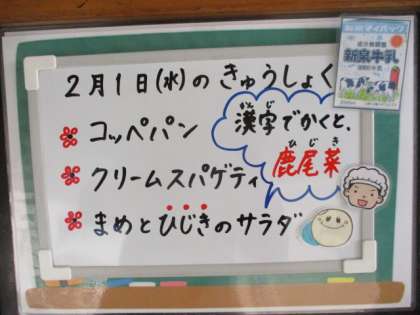 2月1日(水)のきゅうしょく
コッペパン
クリームスパゲティ
まめとひじきのサラダ
漢字でかくと、
かんじ
鹿尾菜
ひじき
新泉牛乳